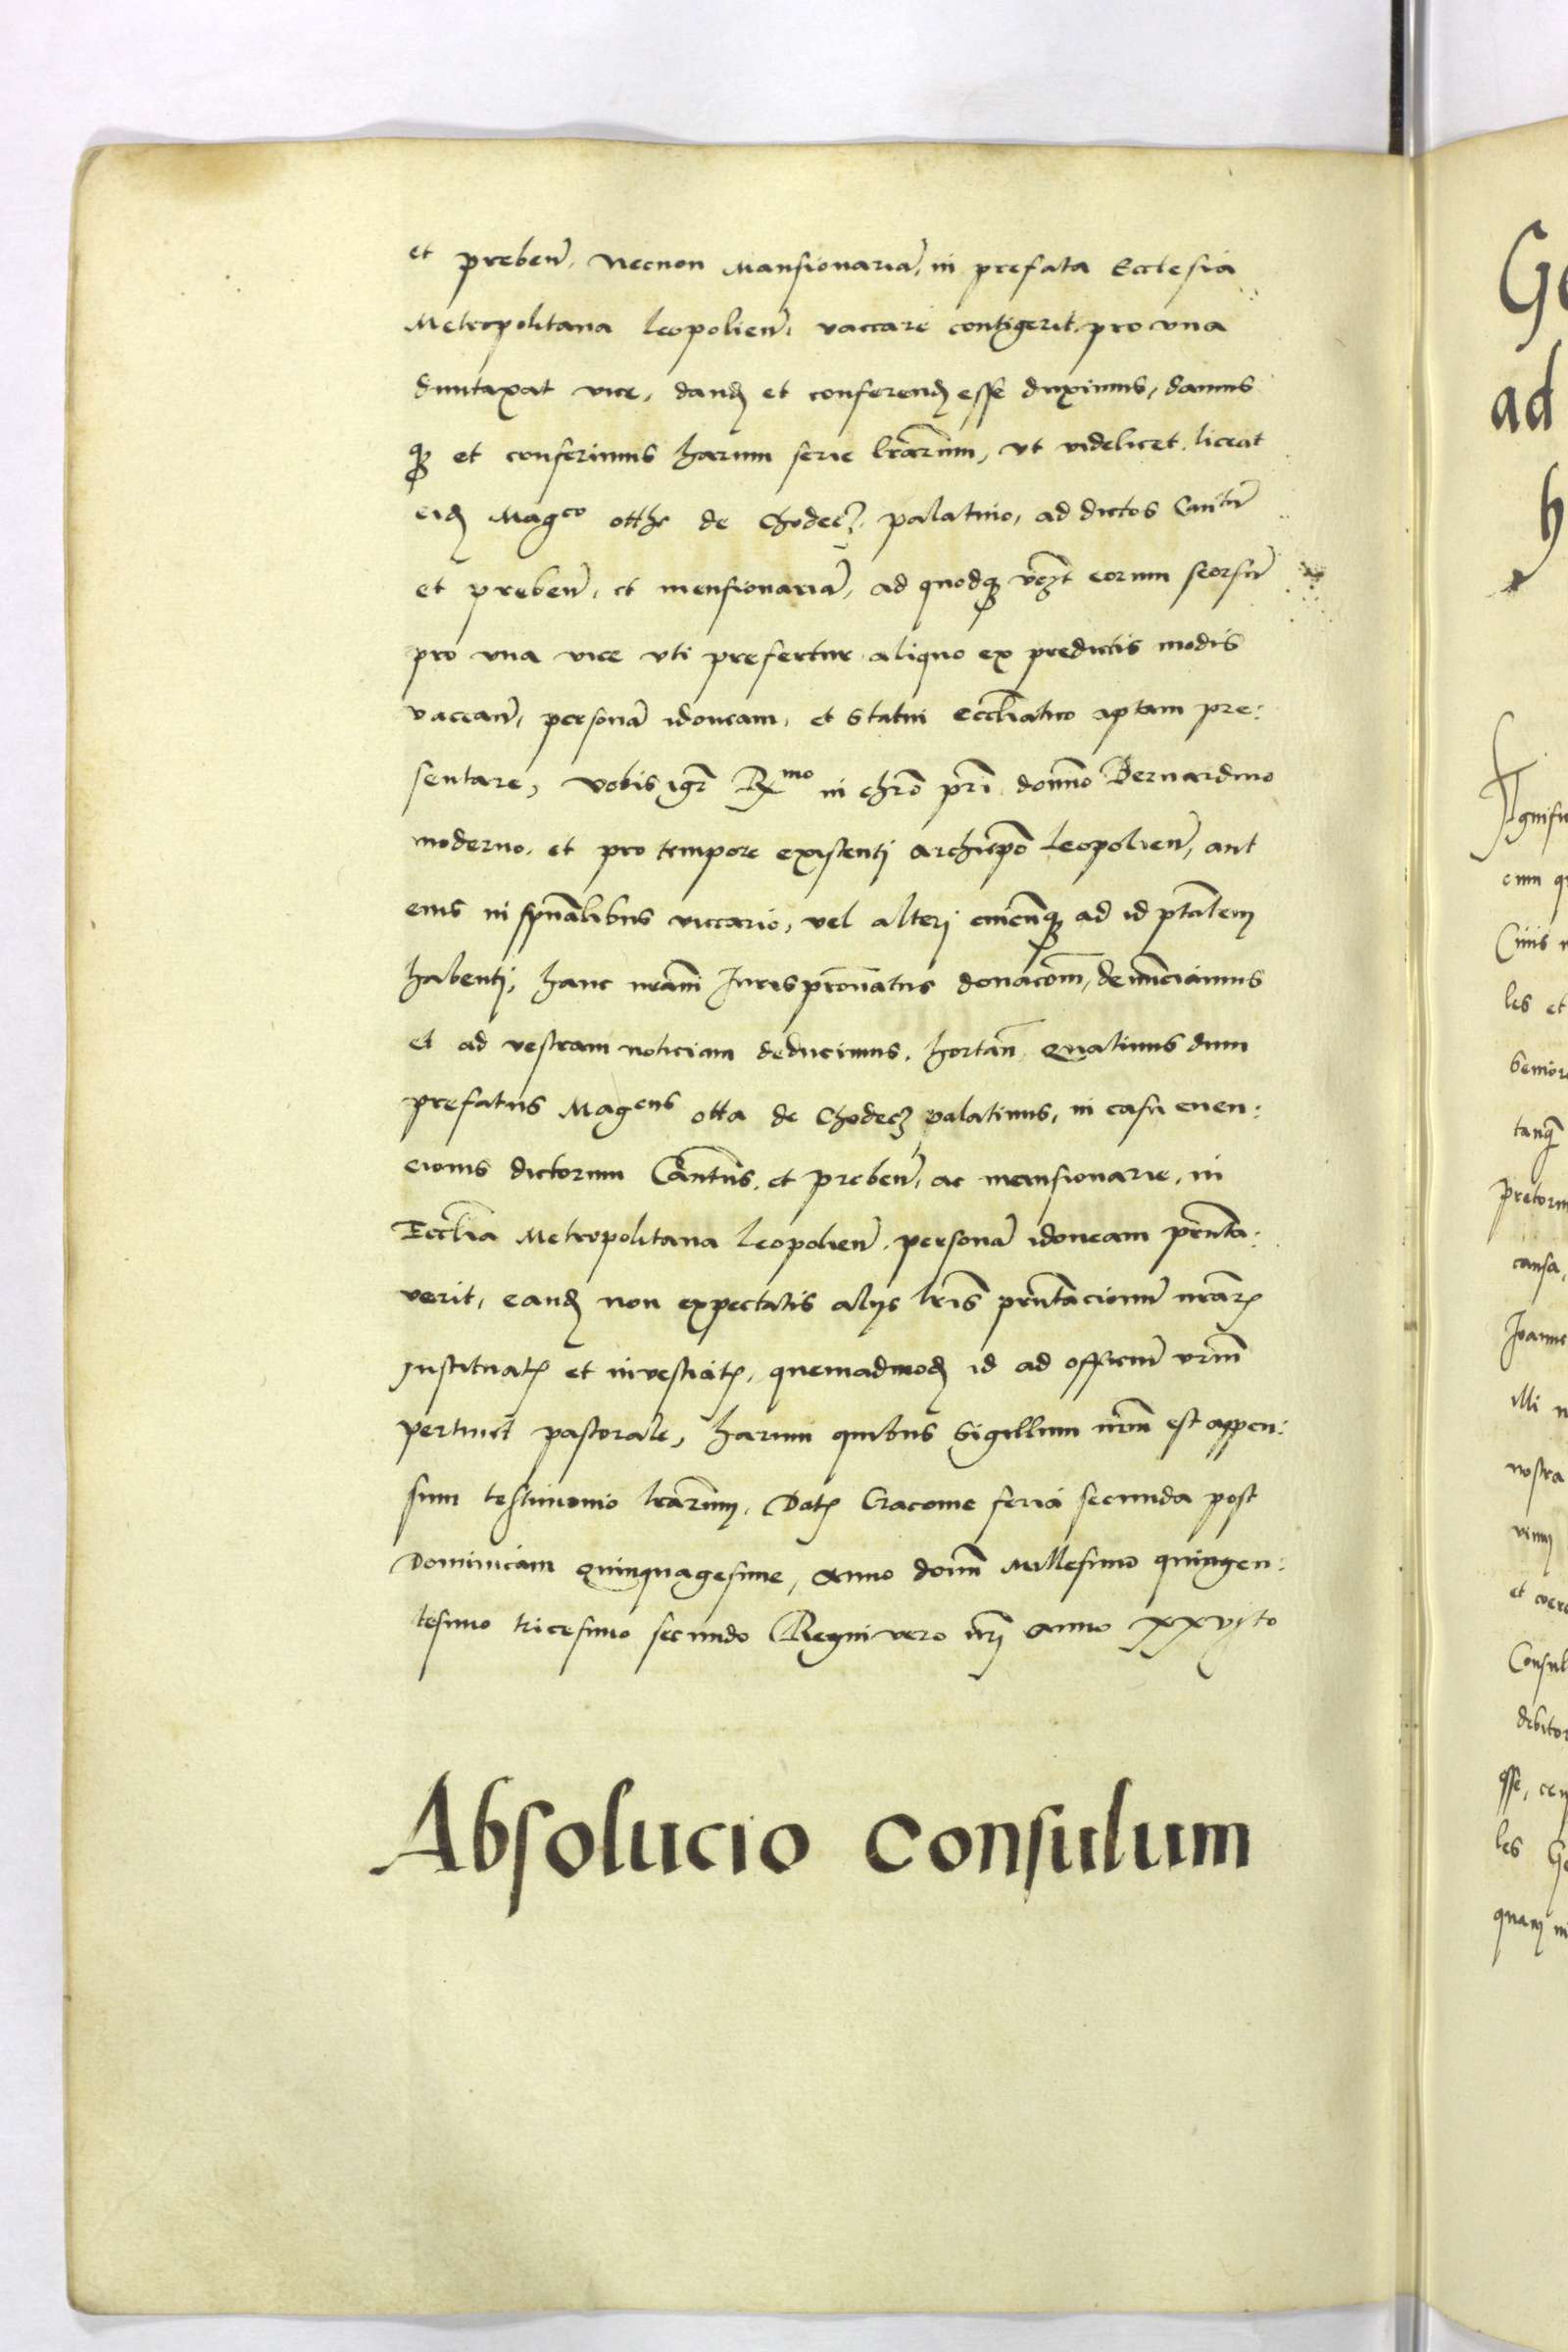 et prebeñ. Necnon Mansionaria͠, in prefata Ecclesia
Metropolitana Leopolieñ. vaccare contigerit, pro vna
duntaxat vice, dand̃ et conferend̃ esse duximus, damus
qꝫ et conferimus harum serie lr̃arum, vt videlicet liceat
eid̃ Mag^co otthe de Chodecz palatino, ad dictos Cant͠u
et prebeñ, et mensionaria͠, ad quodqꝫ eorum seorsu͠
pro vna vice vti prefertur aliquo ex predictis modis
vaccan͠, persona͠ idoneam, et statui eccl͠iastico aptam pre:
sentare, Vobis igr̃ R^mo in chr͠o pr͠i domno Bernardino
moderno, et pro tempore existenti archiep͠o Leopolien͠, aut
eius in sp͠ualibus viccario, vel alteri cuicu͠qꝫ ad id p͠tatem
habenti, hanc nr͠am Iurispr͠onatus donac͠om, denu͠nciamus
et ad vestram noticiam deducimus, hortan͠ Quatinus dum
prefatus Mag^cus otta de Chodecz palatinus, in casu euen:
cionis dictorum Cant͠us, et preben͠, ac mansionarie, in
Eccl͠ia Metropolitana Leopolien͠. persona͠ idoneam pr͠nta:
verit, eand̃ non expectatis alijs lr͠is pr͠ntacionu͠ nr͠arꝫ
Instituatꝫ et investiatꝫ, quemadmod̃ id ad officiu͠ vr͠m
pertinet pastorale, harum quibus Sigillum nr͠m est appen:
sum testimonio lr͠arum, Datꝫ Cracouie feria secunda post
Dominicam Quinquagesime, Anno domĩ Millesimo quingen:
tesimo tricesimo secundo Regni vero nr͠i Anno xxvjto
Absolucio Consulum
Ge
ad
h
cum q
les et
Senior
tanq͠
pretorm
causa,
Joanne
illi
nostra
et coer
Consul
debitor
esse, ce
les Ge
quam in